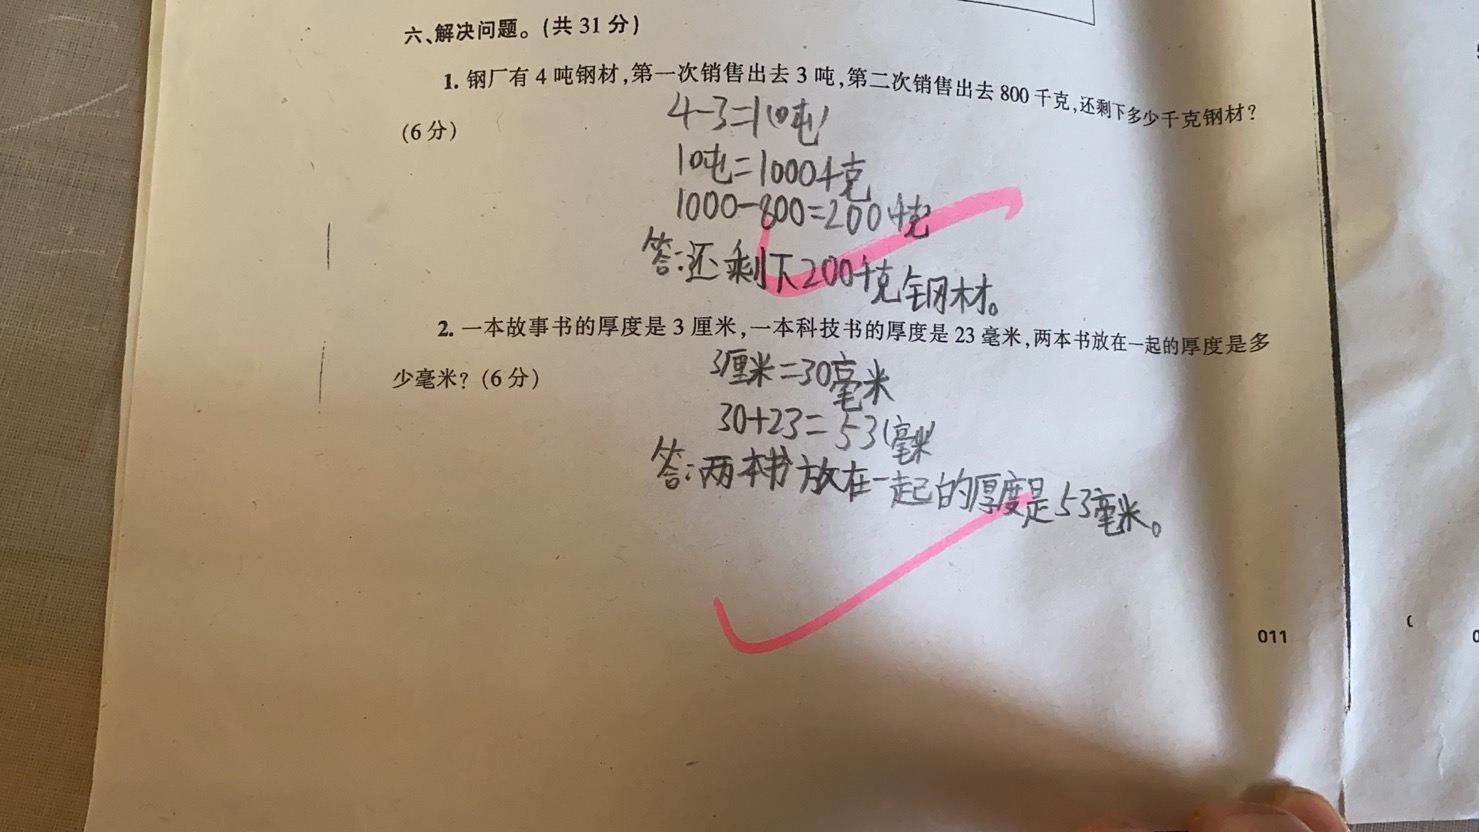 六、解决问题。(共 31 分)
1. 钢厂有 4 吨钢材,第一次销售出去 3 吨,第二次销售出去 800 千克,还剩下多少千克钢材?
(6 分)
4-3=1(吨)
1吨=1000千克
1000-800=200千克
答:还剩下200千克钢材。
2. 一本故事书的厚度是 3 厘米,一本科技书的厚度是 23 毫米,两本书放在一起的厚度是多
少毫米? (6 分)
3厘米=30毫米
30+23=53(毫米)
答:两本书放在一起的厚度是53毫米。
011